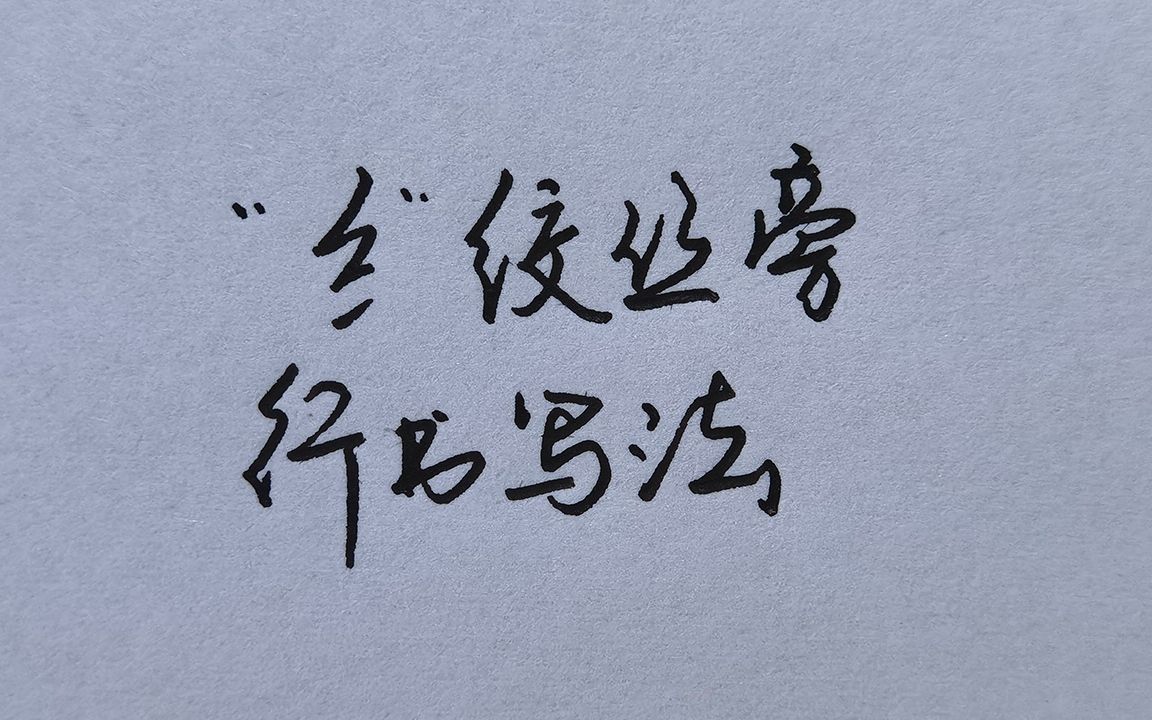 “纟”绞丝旁
行书写法